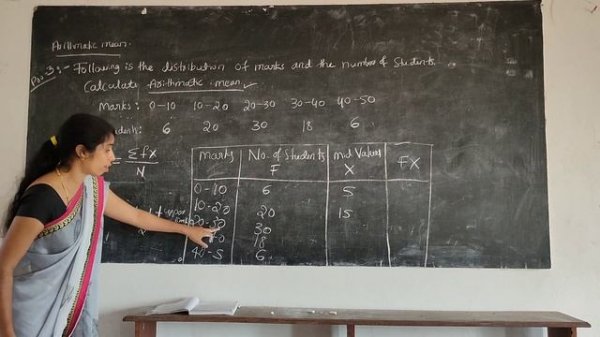 Arithmatic mean.
Pro.3:- Following is the distribution of marks and the number of students.
Calculate Arithmatic mean
Marks: 0-10 10-20 20-30 30-40 40-50
6 20 30 18 6
= Σfx
N
Marks No. of Students F Mid Values X FX
0-10 6 5
10-20 20 15
20-30 30
18
40-5 6